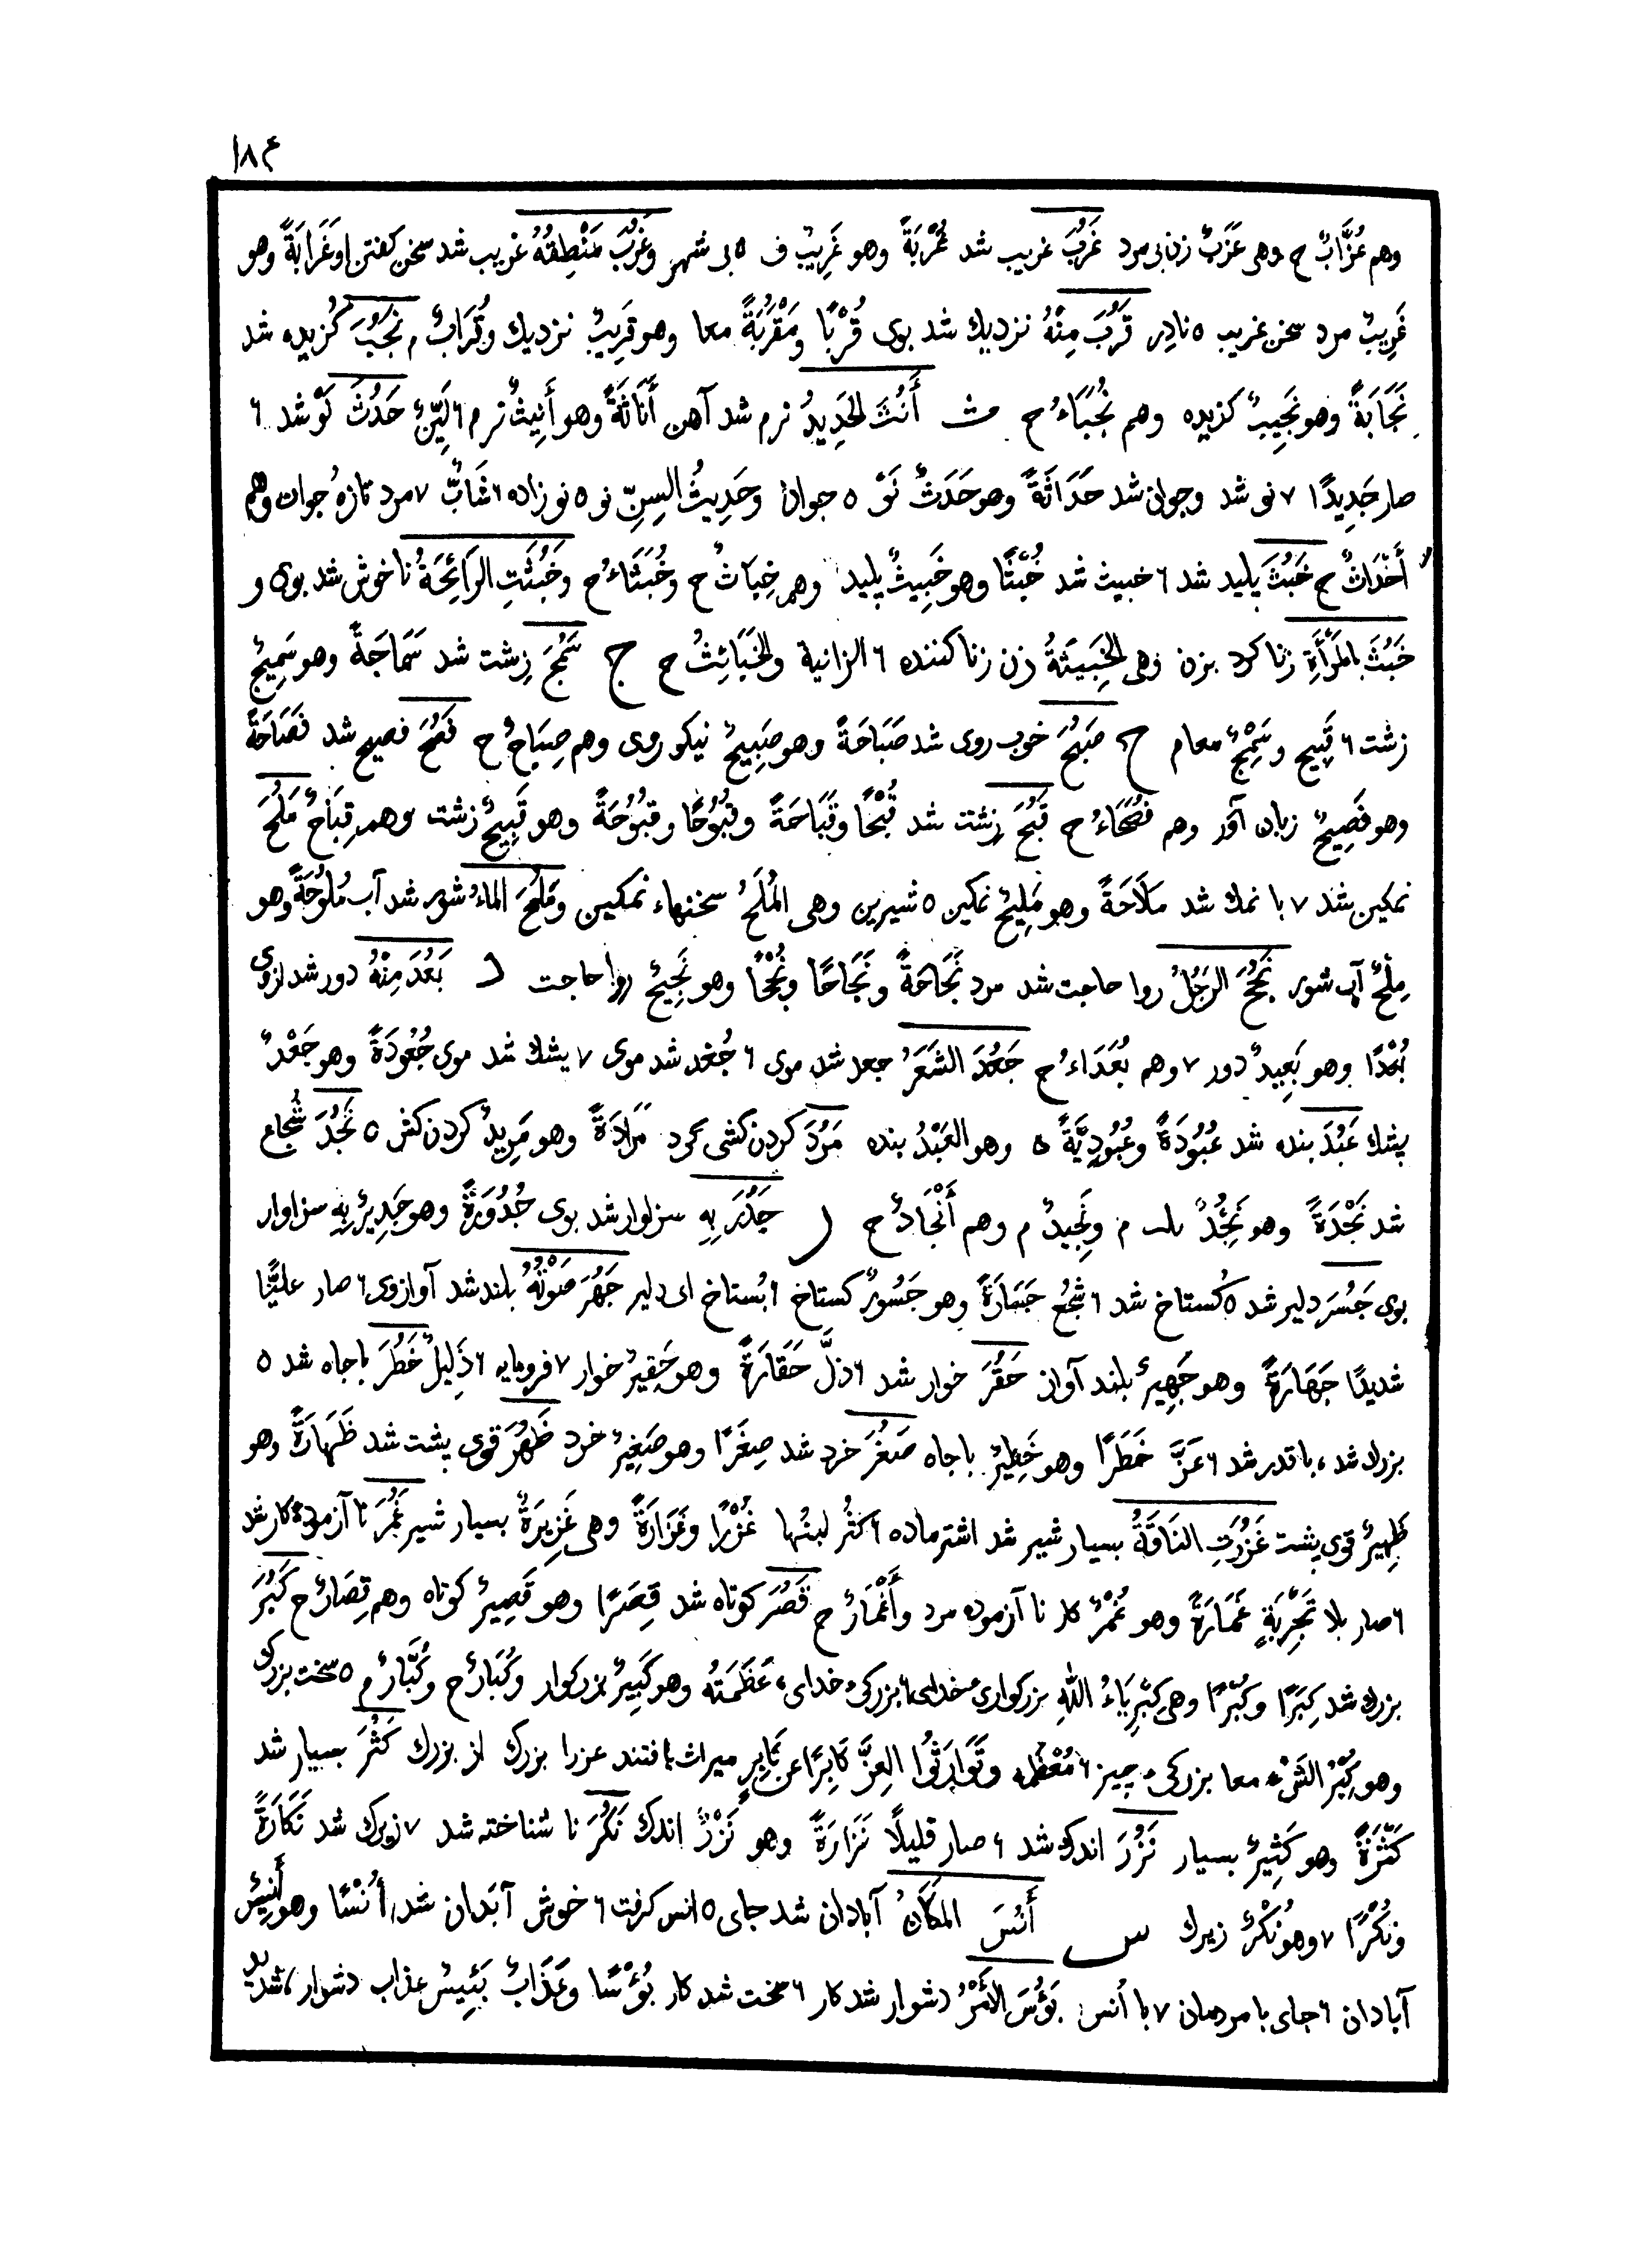 ۱۸۴
وهم عُزَّابٌ ح وهی عَزَبٌ زن بی مرد غَرُبَ غریب شد غُرْبَةً وهو غَرِيبٌ ف ٥ بی شهر وغَرُبَ مَنْطِقُهُ غریب شد سخن کفتن او غَرَابَةً وهو
غَرِيبٌ مرد سخن غریب ٥ نادِر قَرُبَ مِنْهُ نزدیك شد بوی قُرْبًا ومَقْرُبَةً معا وهو قَرِيبٌ نزدیك وقُرَابٌ م نَجُبَ کُزیده شد
نَجَابَةً وهو نَجِيبٌ کزیده وهم نُجَبَاءُ ح ث أَنُثَ الحَدِيدُ نرم شد آهن أَنَاثَةً وهو أَنِيثٌ نرم ٦ لَيِّنٌ حَدُثَ نَوْ شد ٦
صار جَدِيدًا ٧ نو شد وجوان شد حَدَاثَةً وهو حَدَثٌ نَوْ ٥ جوان وحَدِيثُ السِنِّ نو ٥ نو زاده ٦ شَابٌّ ٧ مرد تازه جوان وهم
أَحْدَاثٌ ح خَبُثَ پلید شد ٦ خبیث شد خُبْثًا وهو خَبِيثٌ پلید وهم خِبَاثٌ ح وخُبَثَاءُ ح وخَبُثَتِ الرَائِحَةُ ناخوش شد بوی و
خَبُثَ بالمَرْأَةِ زنا کرد بزن وهی الخَبِيثَةُ زن زنا کننده ٦ الزانية والخَبَائِثُ ح ج سَمُجَ زِشت شد سَمَاجَةً وهو سَمِيجٌ
زشت ٦ قَبِيح وسَمْجٌ معا م ح صَبُحَ خوب روی شد صَبَاحَةً وهو صَبِيحٌ نیکو روی وهم صِبَاحٌ ح فَصُحَ فصیح شد فَصَاحَةً
وهو فَصِيحٌ زبان آوَر وهم فُصَحَاءُ ح قَبُحَ زشت شد قُبْحًا وقَبَاحَةً وقُبُوحًا وقُبُوحَةً وهو قَبِيحٌ زشت وهم قِبَاحٌ مَلُحَ
نمکین شد ٧ با نمك شد مَلَاحَةً وهو مَلِيحٌ نمکین ٥ شیرین وهی المُلَحُ سخنهاء نمکین ومَلُحَ الماءُ شور شد آب مُلُوحَةً وهو
مِلْحٌ آب شور نَجُحَ الرَجُلُ روا حاجت شد مرد نَجَاحَةً ونَجَاحًا ونُجْحًا وهو نَجِيحٌ روا حاجت د بَعُدَ مِنْهُ دور شد از وی
بُعْدًا وهو بَعِيدٌ دور ٧ وهم بُعَدَاءُ ح جَعُدَ الشَعَرُ جعد شد موی ٦ جُغد شد موی ٧ پشك شد موی جُعُودَةً وهو جَعْدٌ
پشك عَبُدَ بنده شد عُبُودَةً وعُبُودِيَّةً ٥ وهو العَبْدُ بنده مَرُدَ کردن کشی کرد مَرَادَةً وهو مَرِيدٌ کردن کش ٥ نَجُدَ شُجاع
شد نَجْدَةً وهو نَجُدٌ م ونَجِيدٌ م وهم أَنْجَادٌ ح ر جَدُرَ بِهِ سزاوار شد بوی جُدُورَةً وهو جَدِيرٌ بِهِ سزاوار
بوی جَسُرَ دلیر شد ٥ کُستاخ شد ٦ شَجُعَ جَسَارَةً وهو جَسُورٌ کستاخ ٦ بُستاخ ای دلیر جَهُرَ صَوْتُهُ بلند شد آواز وی ٦ صار علیّا
شدیدًا جَهَارَةً وهو جَهِيرٌ بلند آواز حَقُرَ خوار شد ٦ ذلَّ حَقَارَةً وهو حَقِيرٌ خوار ٧ فرومایه ٦ ذَلِيلٌ خَطُرَ باجاه شد ٥
بزرك شد ، باقدر شد ٦ عَزَّ خَطَرًا وهو خَطِيرٌ باجاه صَغُرَ خرد شد صِغَرًا وهو صَغِيرٌ خرد ظَهُرَ قوی پشت شد ظَهَارَةً وهو
ظَهِيرٌ قوی پشت غَزُرَتِ النَاقَةُ بسیار شیر شد اشتر ماده ٦ کثُر لبنُها غُزْرًا وغَزَارَةً وهی غَزِيرَةٌ بسیار شیر غَمُرَ نا آزموده کار شد
٦ صار بلا تَجْرِبَةٍ غَمَارَةً وهو غُمْرٌ کار نا آزموده مرد وأَغْمَارٌ ح قَصُرَ کوتاه شد قِصَرًا وهو قَصِيرٌ کوتاه وهم قِصَارٌ ح كَبُرَ
بزرك شد كِبَرًا وكُبْرًا وهی كِبْرِيَاءُ اللهِ بزرکواریء خدای ٦ بزرکیء خدای ، عَظَمَتُه وهو كَبِيرٌ بزرکوار وكُبَارٌ ح وكُبَّارٌ م ٥ سخت بزرك و
وهو كِبْرُ الشَيْءِ معا بزرکیء چیز ٦ مُعْظَمه وتَوَارَثُوا العِزَّ كَابِرًا عن كَابِرٍ میراث یافتند عزرا بزرك از بزرك كَثُرَ بسیار شد
كَثْرَةً وهو كَثِيرٌ بسیار نَزُرَ اندك شد ٦ صار قلیلًا نَزَارَةً وهو نَزْرٌ اندك نَكُرَ نا شناخته شد ٧ زیرك شد نَكَارَةً
ونُكْرًا ٧ وهو نُكْرٌ زیرك س أَنُسَ المَكَانُ آبادان شد جای ٥ انس کرفت ٦ خوش آبَدان شد أُنْسًا وهو أَنِيسٌ
آبادان ٦ جای با مردمان ٧ با اُنس بَؤُسَ الأَمْرُ دشوار شد کار ٦ سخت شد کار بُؤْسًا وعَذَابٌ بَئِيسٌ عذاب دشوار ، شدید